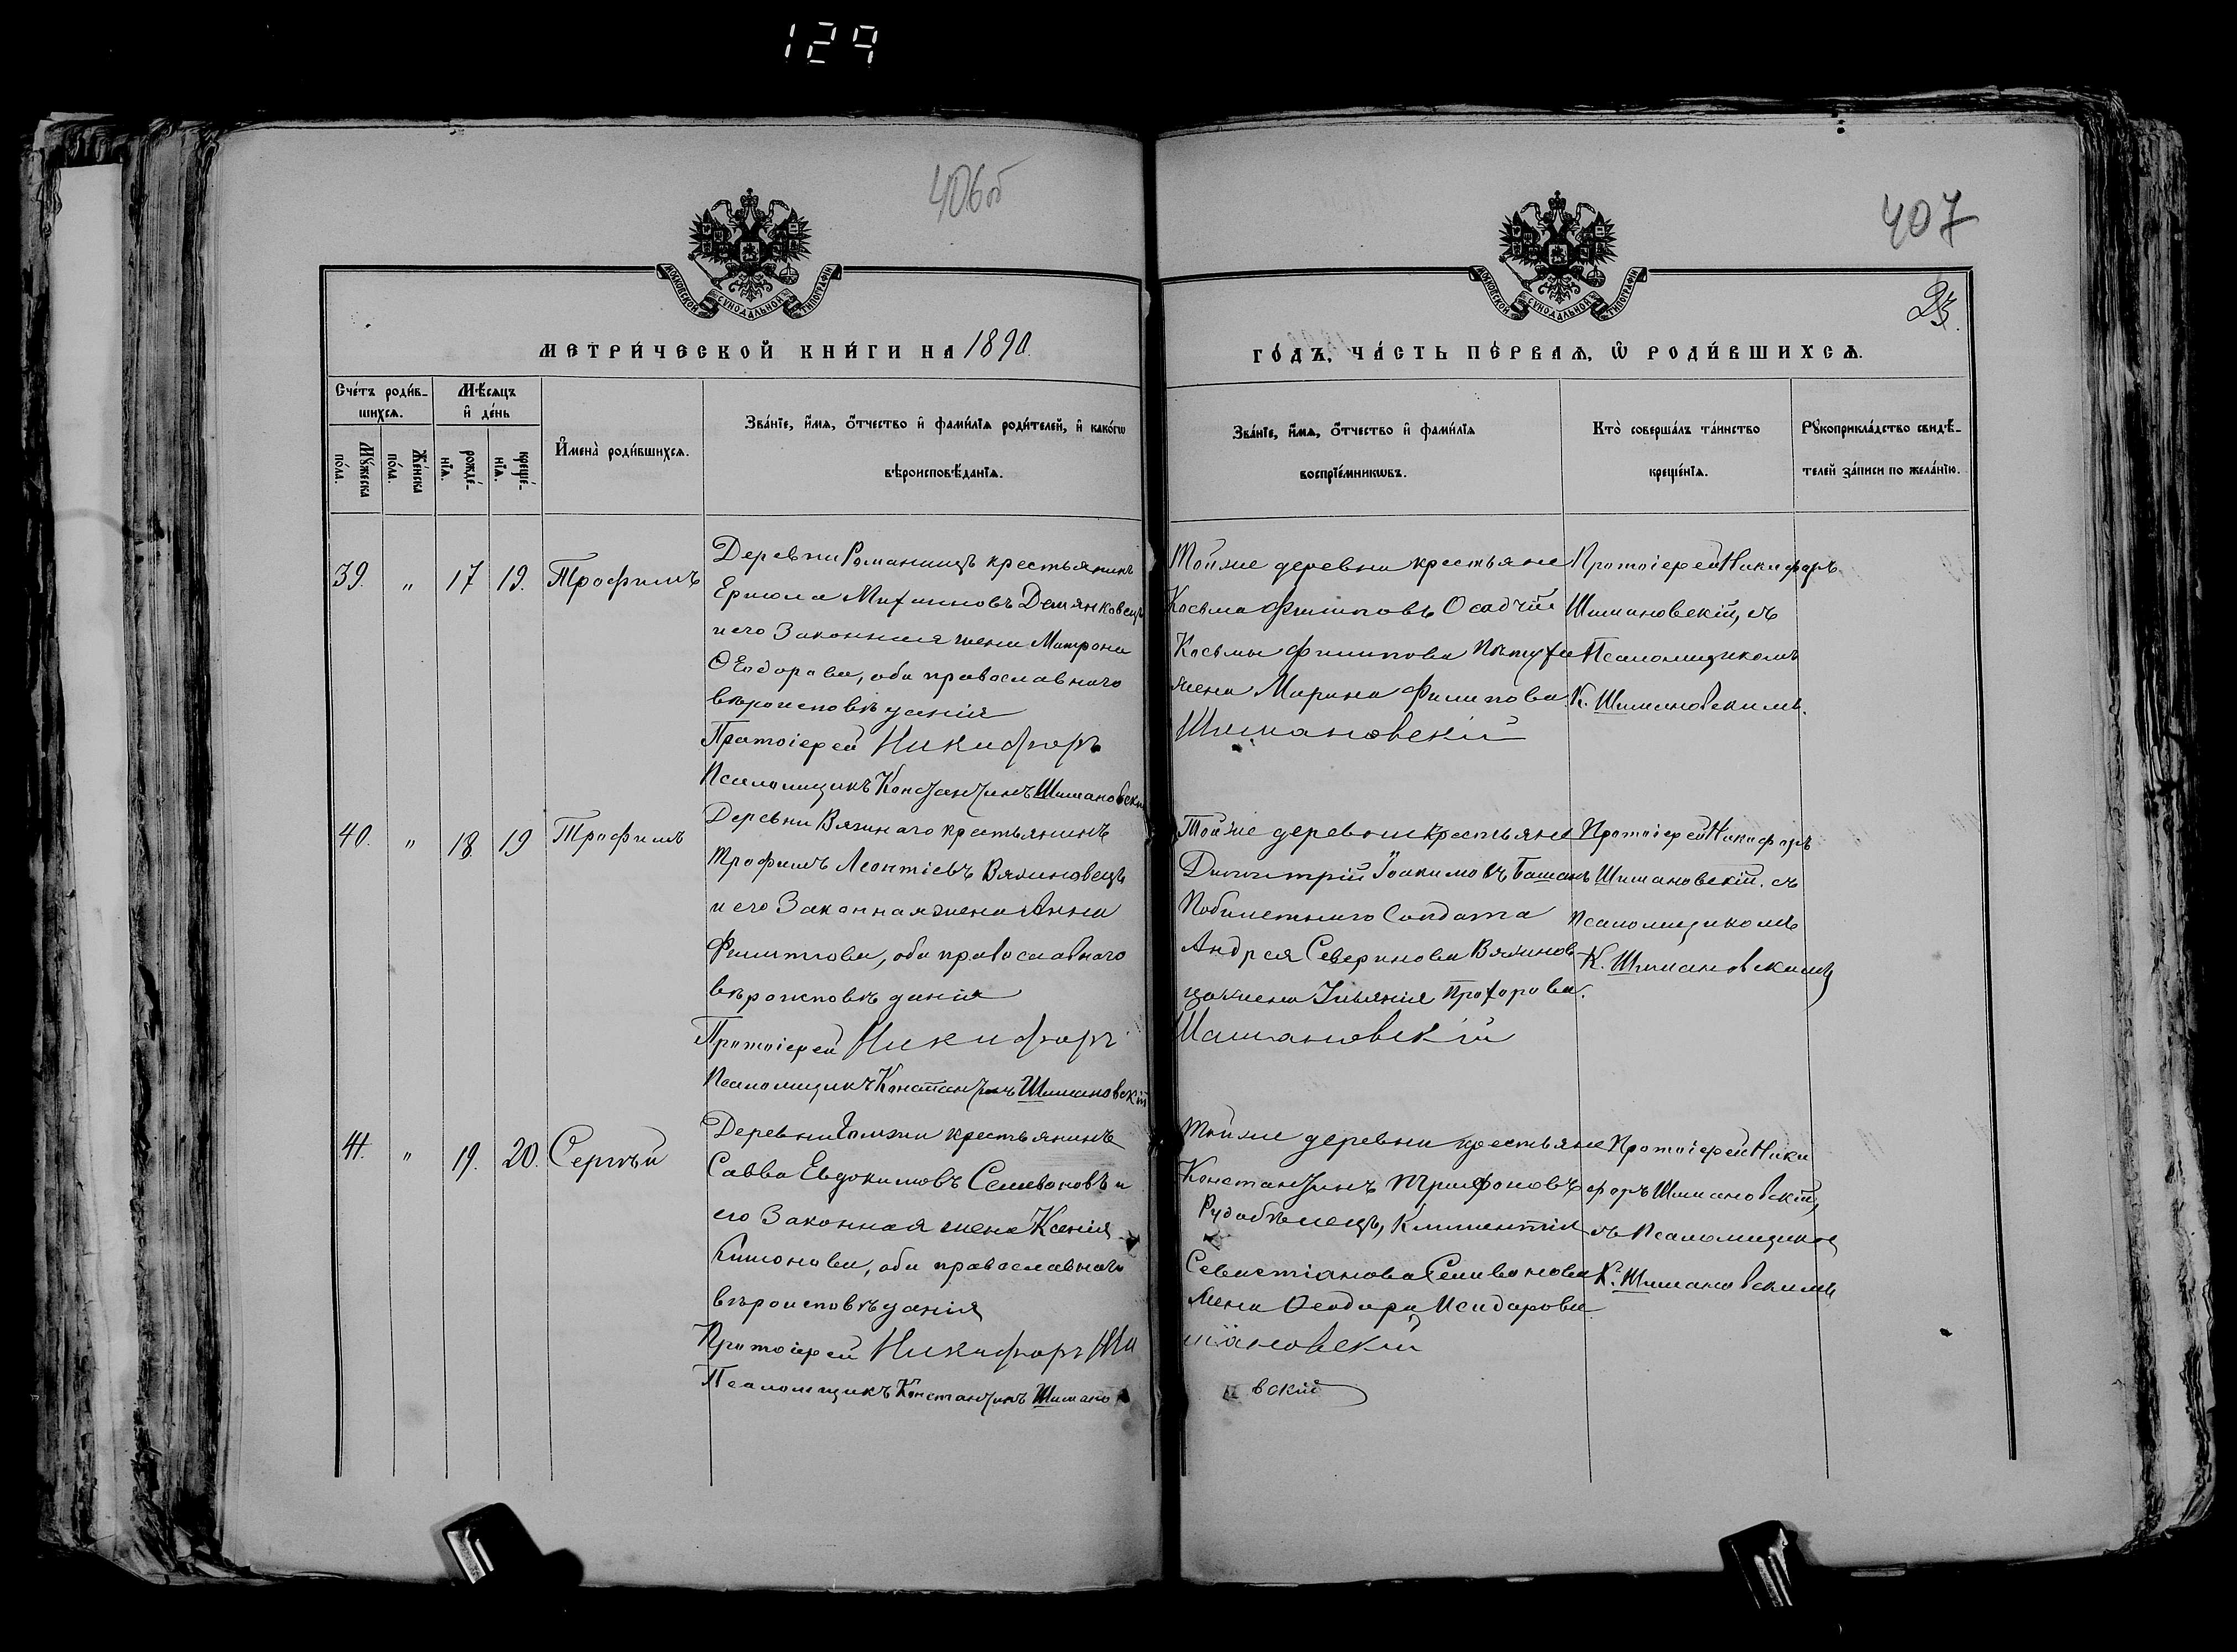 129
406об
407
23.
МОСКОВСКОЙ СѴНОДАЛЬНОЙ ТИПОГРАФІИ
МОСКОВСКОЙ СѴНОДАЛЬНОЙ ТИПОГРАФІИ
МЕТРИ́ЧЕСКОЙ КНИ́ГИ НА 1890.
ГО́ДЪ, ЧА́СТЬ ПЕ́РВАѦ, Ѡ҆ РОДИ́ВШИХСѦ.
Сче́тъ роди́в-
шихсѧ.
Мѣ́сѧцъ
и҆ де́нь
Мꙋ́жеска
по́ла.
Же́нска
по́ла.
рожде́-
нїѧ.
креще́-
нїѧ.
И҆мена̀ роди́вшихсѧ.
Зва́нїе, и҆́мѧ, ѻ҆́тчество и҆ фами́лїѧ роди́телей, и҆ како́гѡ
вѣроисповѣ́данїѧ.
Зва́нїе, и҆́мѧ, ѻ҆́тчество и҆ фами́лїѧ
воспрїе́мникѡвъ.
Кто̀ соверша́лъ та́инство
креще́нїѧ.
Рꙋкоприкла́дство свидѣ́-
телей за́писи по жела́нїю.
39. " 17 19. Трофимъ
Деревни Романищъ крестьянинъ
Ермола Михаиловъ Демянковецъ
и его Законная жена Матрона
Ѳеодорова, оба православнаго
вѣроисповѣданія
Протоіерей Никифоръ
Псаломщикъ Константинъ Шимановскій
Тойже деревни крестьяне
Косьма Филиповъ Осадчій
Косьмы Филипова
жена Марина Филипова.
Шимановскій
Протоіерей Никифоръ
Шимановскій, съ
Псаломщикомъ
К. Шимановскимъ.
40. " 18. 19 Трофимъ
Деревни Вязинаго крестьянинъ
Трофимъ Леонтіевъ Вязиновецъ
и его Законная жена Анна
Филипова, оба православнаго
вѣроисповѣданія
Протоіерей Никифоръ
Псаломщикъ Константинъ Шимановскій
Тойже деревни крестьяне
Димитрій Іоакимовъ Башанъ
Побилетнаго Солдата
Андрея Северинова Вязинов-
ца жена Іуліянія Прохорова.
Шимановскій
Протоіерей Никифоръ
Шимановскій. съ
псаломщикомъ
К. Шимановскимъ
41. " 19. 20. Сергѣй
Деревни крестьянинъ
Савва Евдокимовъ Селивоновъ и
его Законная жена Ксенія
Симонова, оба православнаго
вѣроисповѣданія
Протоіерей Никифоръ Ши
Псаломщикъ Константинъ Шимано
Тойже деревни крестьяне
Константинъ Трифоновъ
Рудобѣлецъ, Климентія
Севастіанова Селивонова
жена Ѳеодора Исидорова
мановскій
вскій
Протоіерей Ники
форъ Шимановскій,
съ Псаломщикомъ
К. Шимановскимъ